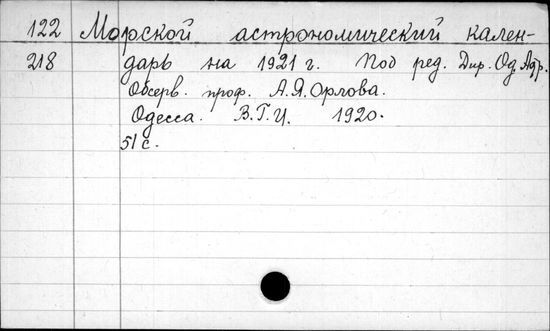 122 Морской астрономический кален-
218 дарь на 1921 г. Под ред. Дир. Од. Адр.
Обсерв. проф. А.Я.Орлова.
Одесса. В.Г.И. 1920.
51 с.